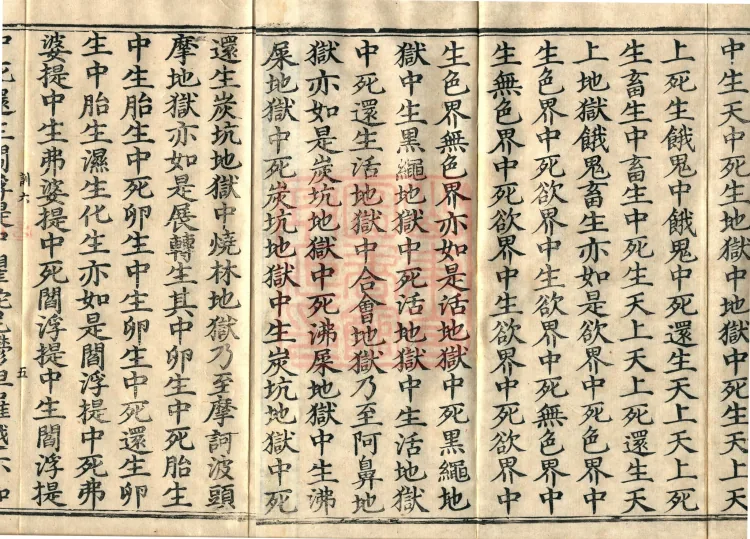 中生天中死生地獄中地獄中死生天上天
上死生餓鬼中餓鬼中死還生天上天上死
生畜生中畜生中死生天上天上死還生天
上地獄餓鬼畜生亦如是欲界中死色界中
生色界中死欲界中生欲界中死無色界中
生無色界中死欲界中生欲界中死欲界中
生色界無色界亦如是活地獄中死黑繩地
獄中生黑繩地獄中死活地獄中生活地獄
中死還生活地獄中合會地獄乃至阿鼻地
獄亦如是炭坑地獄中死沸屎地獄中生沸
屎地獄中死炭坑地獄中生炭坑地獄中死
還生炭坑地獄中燒林地獄乃至摩訶波頭
摩地獄亦如是展轉生其中卵生中死胎生
中生胎生中死卵生中生卵生中死還生卵
生中胎生濕生化生亦如是閻浮提中死弗
婆提中生弗婆提中死閻浮提中生閻浮提
五
中死還生閻浮提中